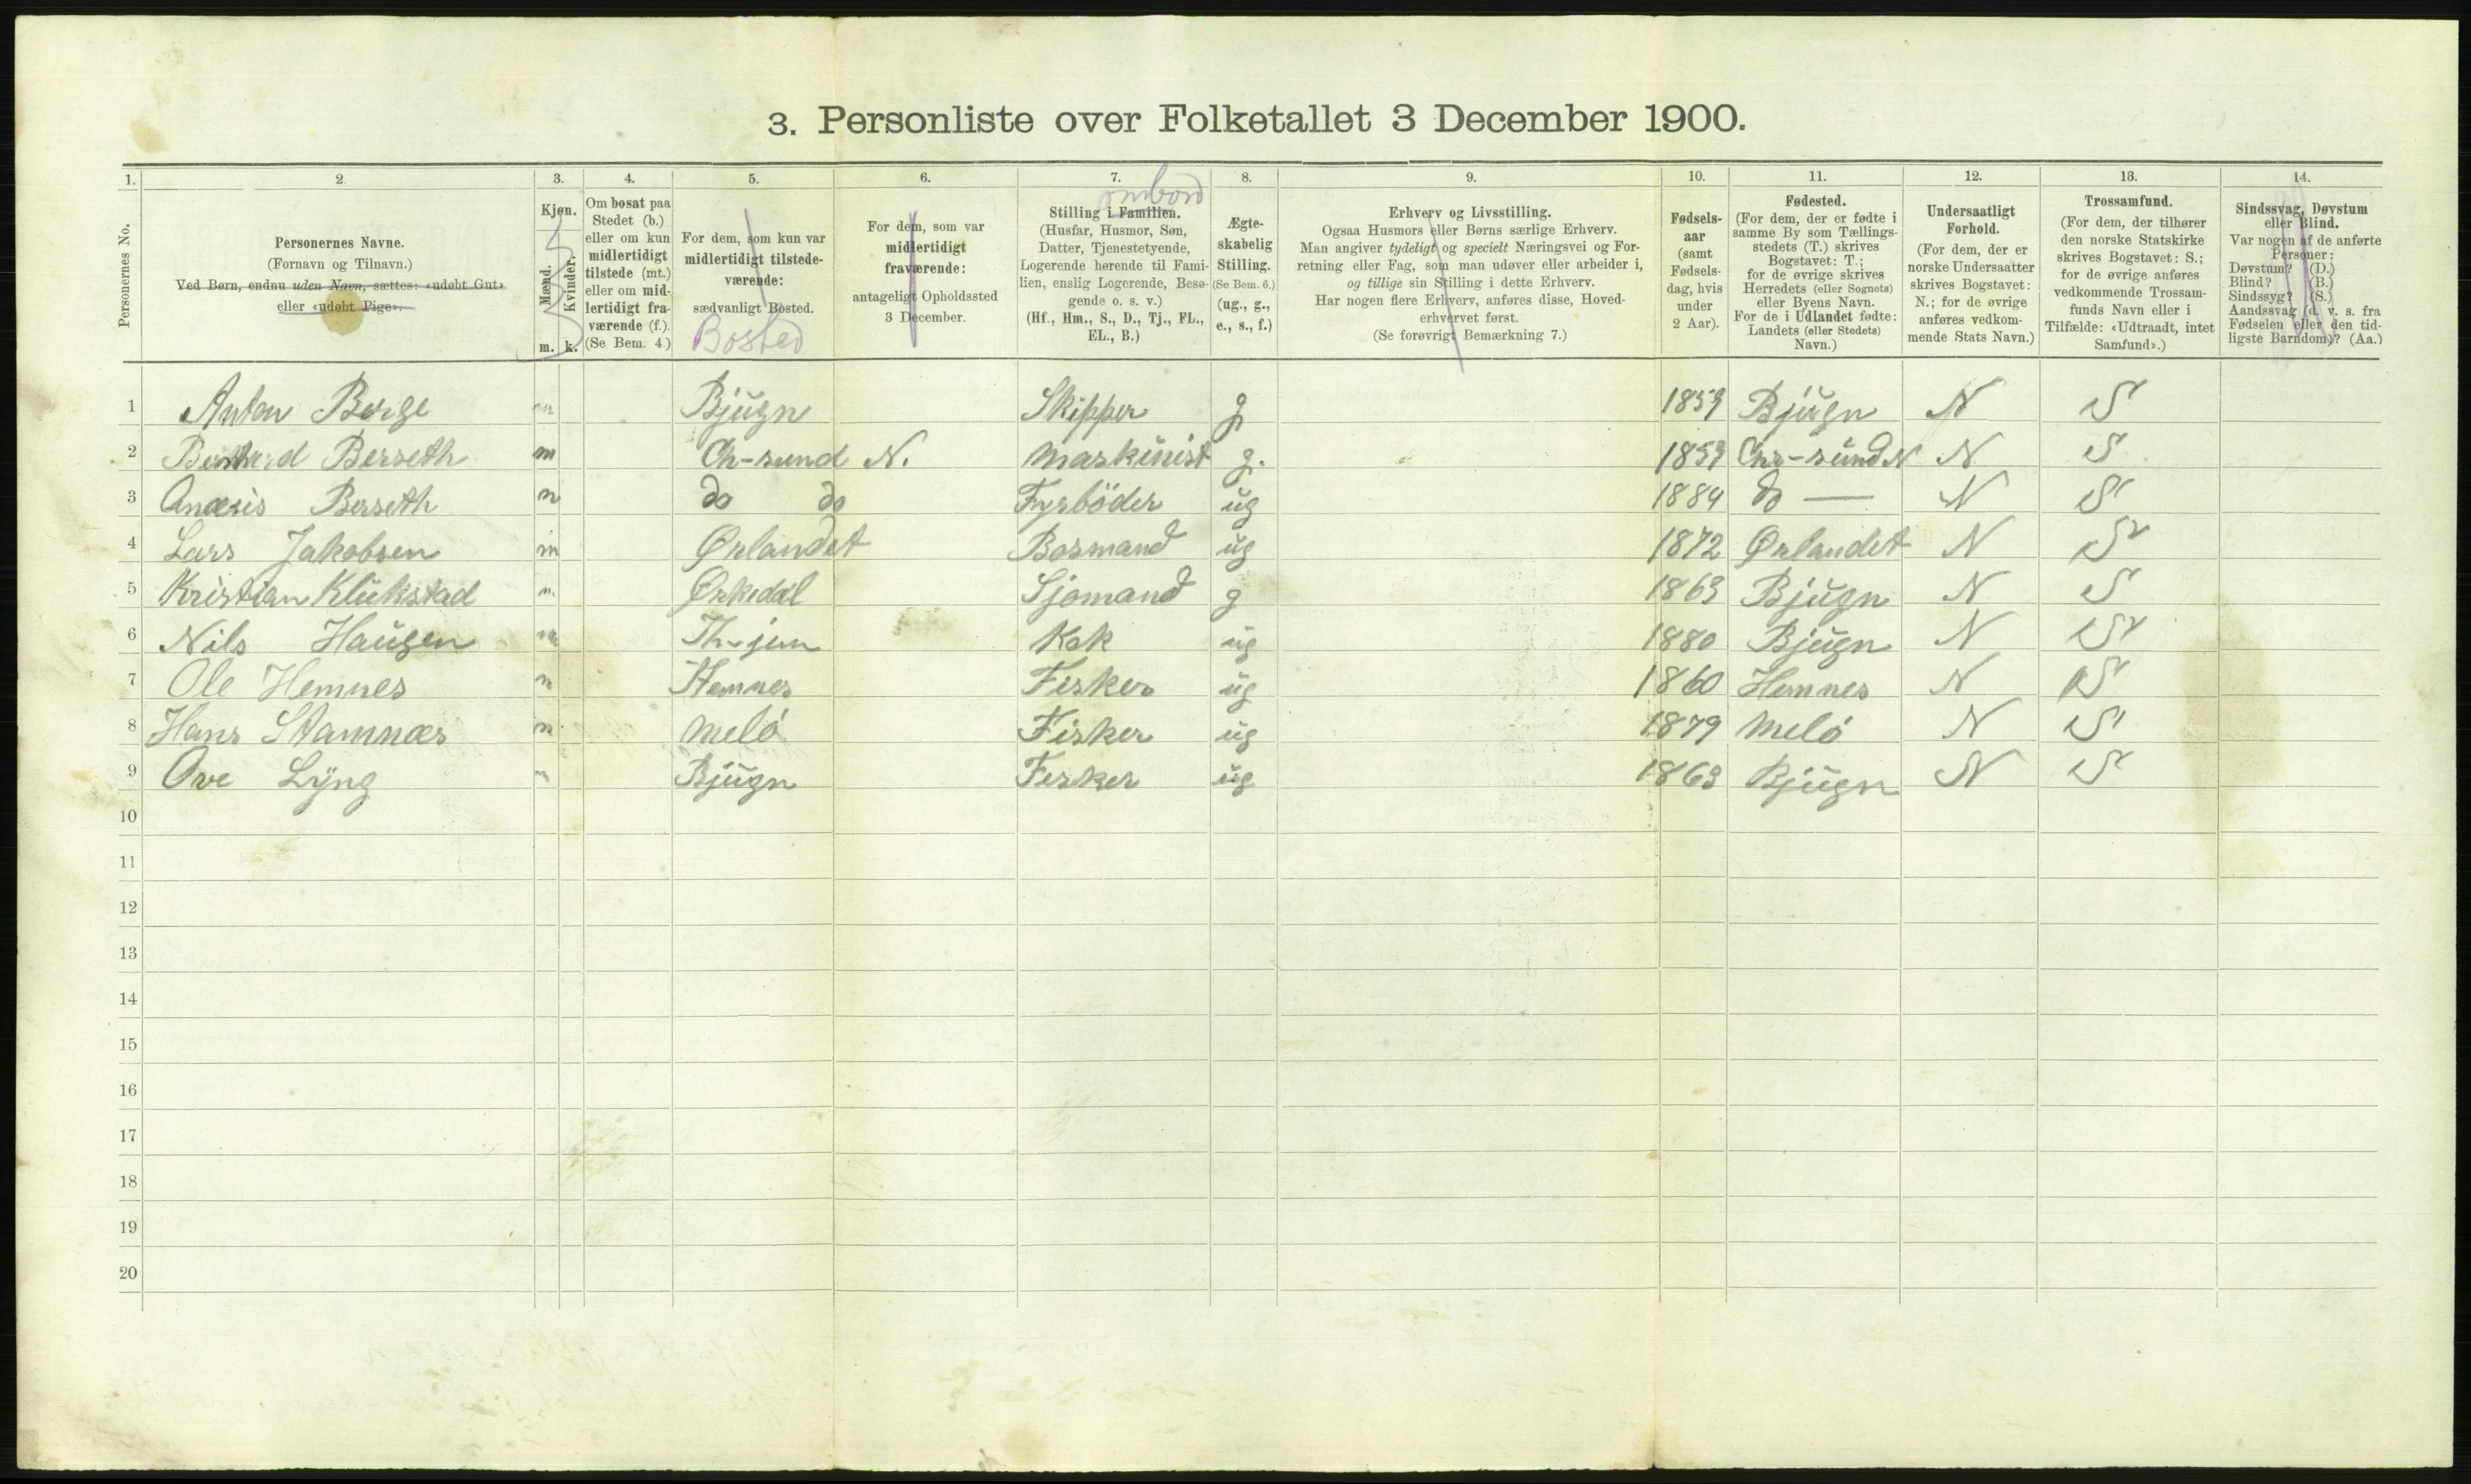 3. Personliste over Folketallet 3 December 1900.
1. 2. 3. 4. 5. 6. 7. 8. 9. 10. 11. 12. 13. 14.
Personernes No.
Personernes Navne.
(Fornavn og Tilnavn.)
Ved Børn, endnu uden Navn, sættes: «udøbt Gut»
eller «udøbt Pige».
Kjøn.
Mænd.
Kvinder.
m. k.
Om bosat paa
Stedet (b.)
eller om kun
midlertidigt
tilstede (mt.)
eller om mid-
lertidigt fra-
værende (f.).
(Se Bem. 4.)
For dem, som kun var
midlertidigt tilstede-
værende:
sædvanligt Bosted.
Bosted
For dem, som var
midlertidigt
fraværende:
antageligt Opholdssted
3 December.
ombord
Stilling i Familien.
(Husfar, Husmor, Søn,
Datter, Tjenestetyende,
Logerende hørende til Fami-
lien, enslig Logerende, Besø-
gende o. s. v.)
(Hf., Hm., S., D., Tj., FL.,
EL., B.)
Ægte-
skabelig
Stilling.
(Se Bem. 6.)
(ug., g.,
e., s., f.)
Erhverv og Livsstilling.
Ogsaa Husmors eller Børns særlige Erhverv.
Man angiver tydeligt og specielt Næringsvei og For-
retning eller Fag, som man udøver eller arbeider i,
og tillige sin Stilling i dette Erhverv.
Har nogen flere Erhverv, anføres disse, Hoved-
erhvervet først.
(Se forøvrigt Bemærkning 7.)
Fødsels-
aar
(samt
Fødsels-
dag, hvis
under
2 Aar).
Fødested.
(For dem, der er fødte i
samme By som Tællings-
stedets (T.) skrives
Bogstavet: T.;
for de øvrige skrives
Herredets (eller Sognets)
eller Byens Navn.
For de i Udlandet fødte:
Landets (eller Stedets)
Navn.)
Undersaatligt
Forhold.
(For dem, der er
norske Undersaatter
skrives Bogstavet:
N.; for de øvrige
anføres vedkom-
mende Stats Navn.)
Trossamfund.
(For dem, der tilhører
den norske Statskirke
skrives Bogstavet: S.;
for de øvrige anføres
vedkommende Trossam-
funds Navn eller i
Tilfælde: «Udtraadt, intet
Samfund».)
Sindssvag, Døvstum
eller Blind.
Var nogen af de anførte
Personer:
Døvstum? (D.)
Blind? (B.)
Sindssyg? (S.)
Aandssvag (d. v. s. fra
Fødselen eller den tid-
ligste Barndom)? (Aa.)
1 Anton Berge m Bjugn Skipper g 1859 Bjugn N S
2 Berseth m Ch-sund N. Maskinist g. 1859 Chr-sund N N S
3 Berseth m do do Fyrböder ug 1884 do — N S
4 Lars Jakobsen m Ørlandet Bosmand ug 1872 Ørlandet N S
5 Kristian Klukstad m Ørkedal Sjømand g 1863 Bjugn N S
6 Nils Haugen m Th-jem Kok ug 1880 Bjugn N S
7 Ole Hemnes m Hemnes Fisker ug 1860 Hemnes N S
8 Hans Stamnæs m Melö Fisker ug 1879 Melö N S
9 Ove Lyng m Bjugn Fisker ug 1863 Bjugn N S
10
11
12
13
14
15
16
17
18
19
20